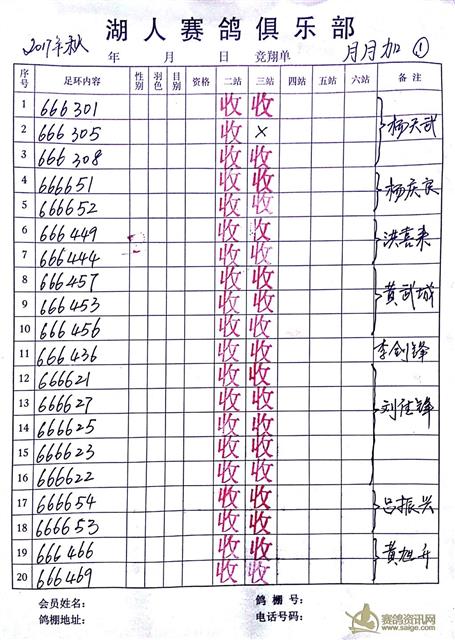 湖人赛鸽俱乐部
2017年秋 年 月 日 竞翔单 月月加 ①
序号 足环内容 性别 羽色 目别 资格 二站 三站 四站 五站 六站 备注
1 666301 收 收
2 666305 收 × 杨天武
3 666308 收 收
4 666651 收 收 杨庆良
5 666652 收 收
6 666449 收 收 洪喜来
7 666444 收 收
8 666457 收 收
9 666453 收 收 黄武城
10 666456 收 收
11 666436 收 收 李剑锋
12 666621 收 收
13 666627 收 收 刘佳锋
14 666625 收 收
15 666623 收 收
16 666622 收 收
17 666654 收 收 吕振兴
18 666653 收 收
19 666466 收 收 黄旭升
20 666469 收 收
会员姓名: 鸽棚号:
鸽棚地址: 电话号码:
赛鸽资讯网
www.saige.com